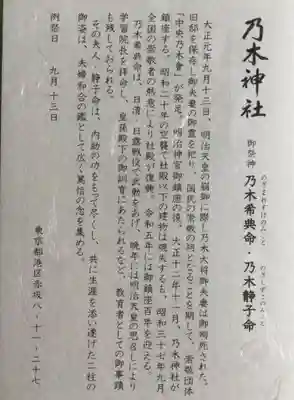 乃木神社
御祭神
乃木希典命・乃木静子命
のぎまれすけのみこと
のぎしずこのみこと
大正元年九月十三日、明治天皇の御大葬に際し乃木大将御夫妻は御殉死された。
旧邸を保存し御夫妻の御霊を祀り、国民の崇敬の的となることを期して、崇敬団体
「中央乃木會」が発足。明治神宮御鎮座の後、大正十二年十一月、乃木神社が
鎮座する。昭和二十年の空襲で社殿以下の建物は焼失するも、昭和三十七年九月
全国の崇敬者の熱意により社殿が復興。令和五年には御鎮座百年を迎える。
乃木希典命は、日清・日露戦役で武勲をあげ、晩年には明治天皇の思召しにより
学習院長を拝命し、皇孫殿下の御訓育にあたられるなど、教育者としての御事蹟
も残しておられる。
その夫人・静子命は、内助の功をもって尽くし、共に生涯を添い遂げた二柱の
御姿は、夫婦和合の鑑として広く篤信の念を集める。
例祭日 九月十三日
東京都港区赤坂八-十一-二十七